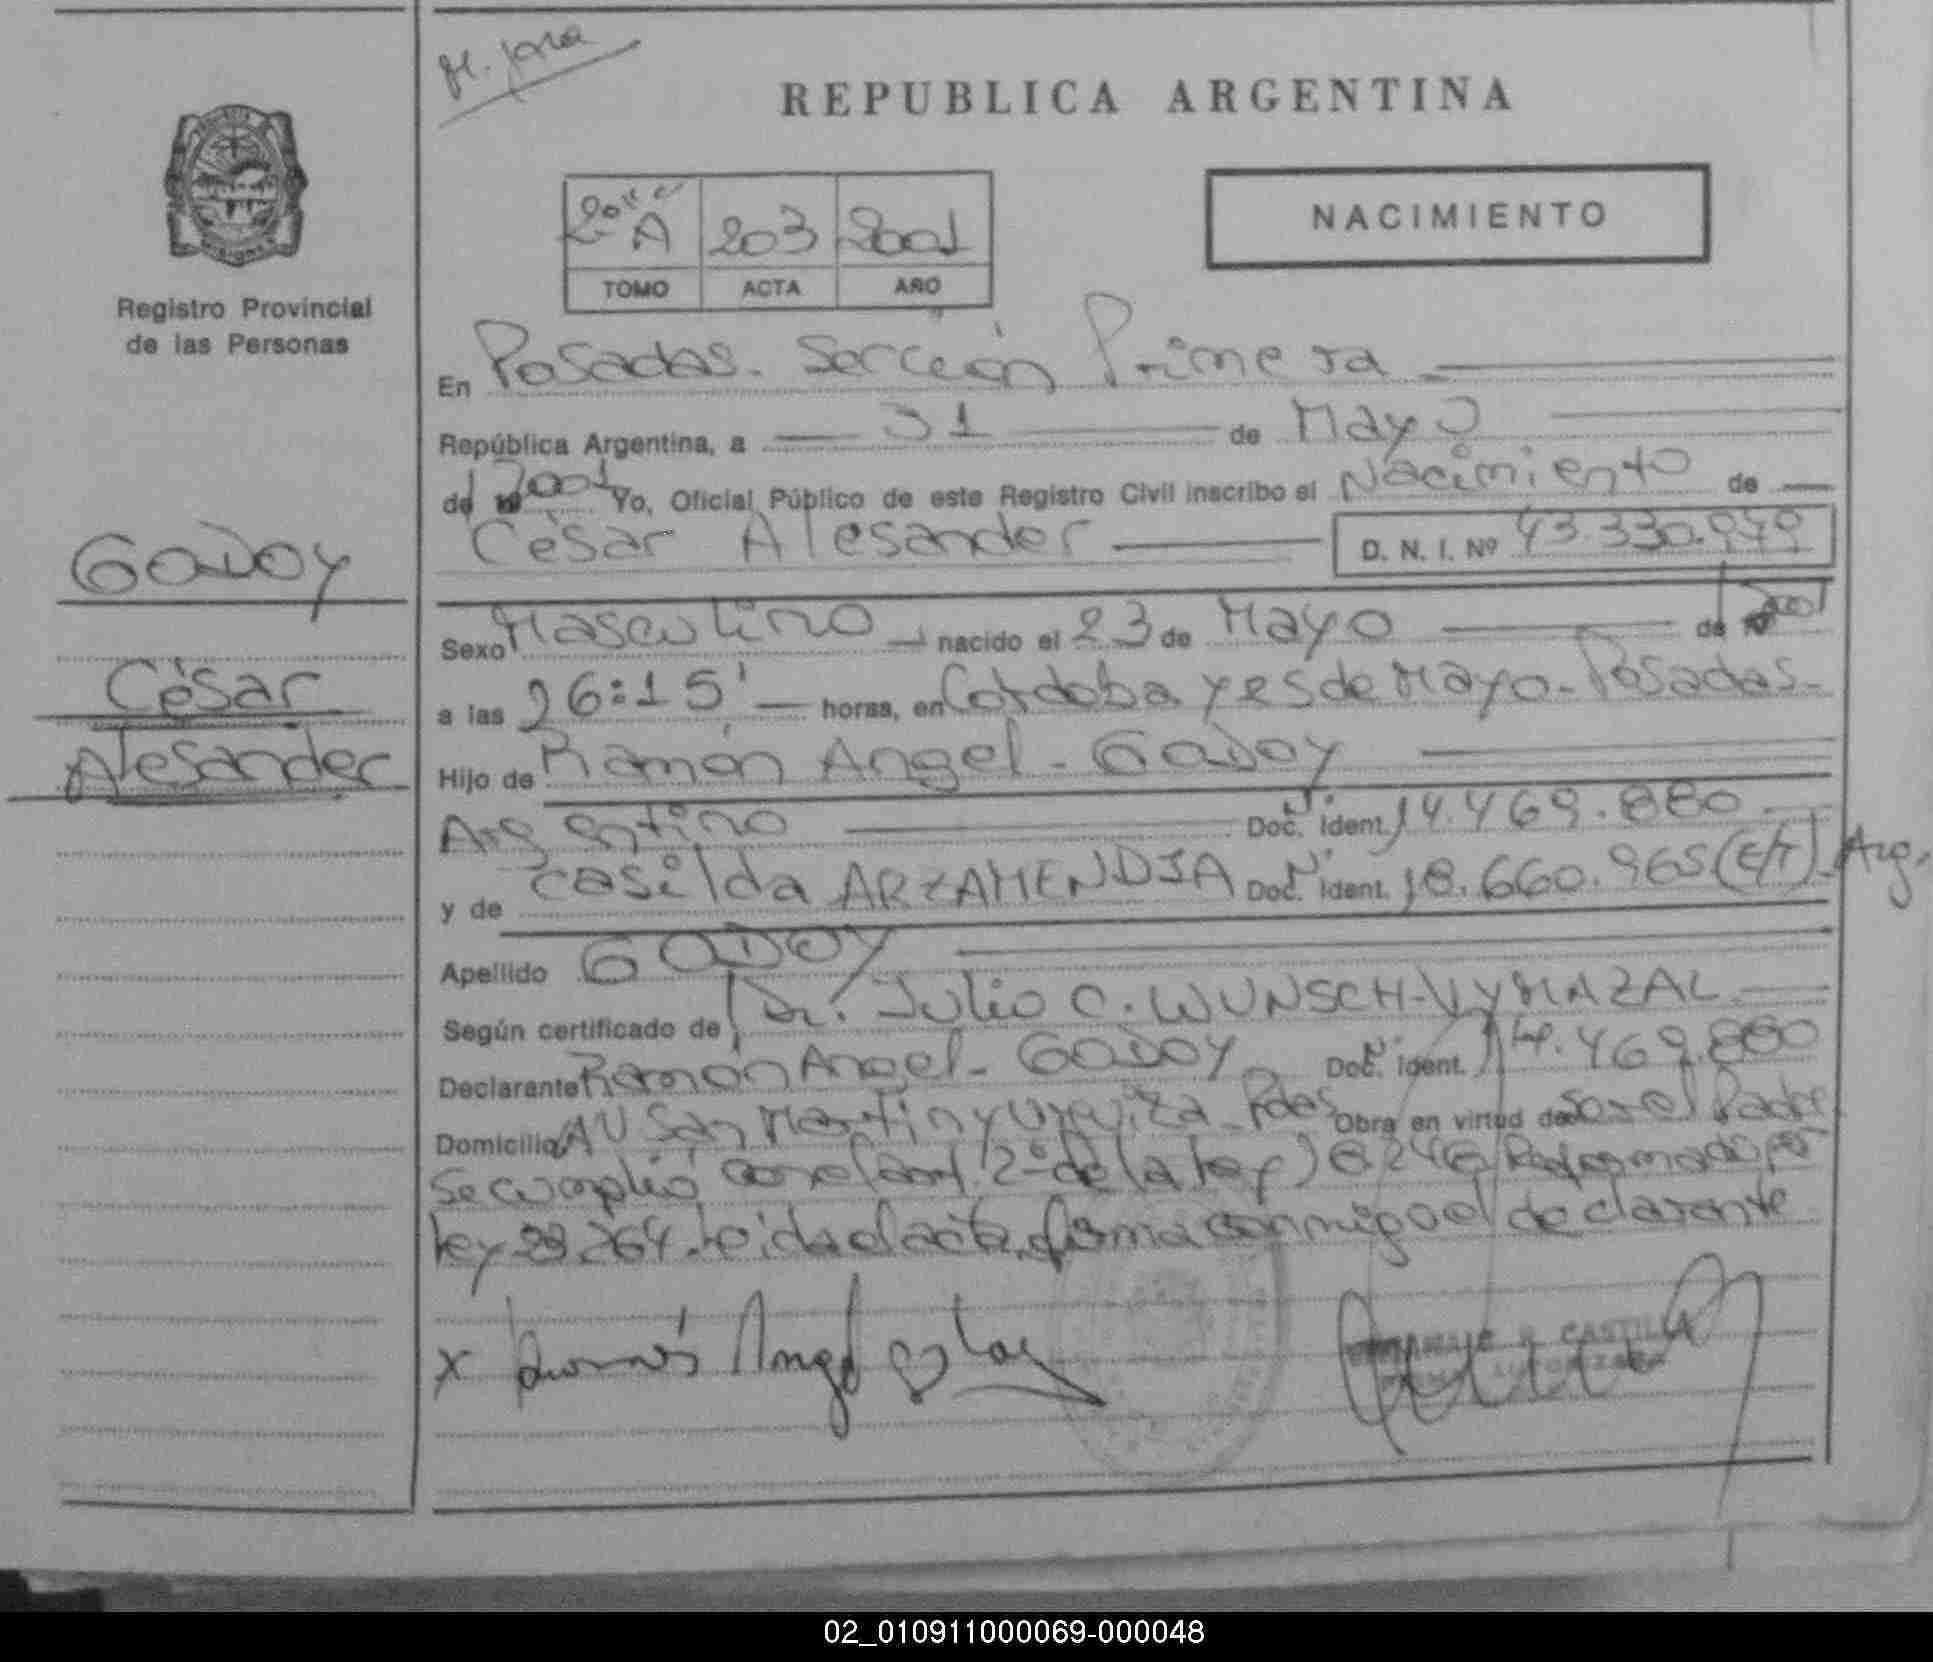 M. Jara
REPUBLICA ARGENTINA
NACIMIENTO
A 203 2001
TOMO ACTA AÑO
Registro Provincial
de las Personas
En Posadas. Sección Primera
República Argentina, a 31 de Mayo
de 2001 Yo, Oficial Público de este Registro Civil inscribo el Nacimiento de
César Alesander D. N. I. Nº 43.330.949
GODOY
César
Alesander
Sexo Masculino nacido el 23 de Mayo de 2001
a las 16:15' horas, en Córdoba y 25 de Mayo - Posadas.
Hijo de Ramón Angel - GODOY
Argentino Doc. Ident. 14.469.880
y de Casilda ARZAMENDIA Doc. Ident. 18.660.965 (E/T). Arg.
Apellido GODOY
Según certificado de Dr. Julio C. WUNSCH-VYMAZAL
Declarante Ramón Angel - GODOY Doc. Ident. 14.469.880
Domicilio AV San Martin y Urquiza - Pdas Obra en virtud de Ser el Padre
Se cumplió con el art. 2º de la ley 18.248 Reformado por
ley 23.264. Leida el acta, firma conmigo el declarante
x Ramón Angel Godoy
R. CASTILLA
02_010911000069-000048